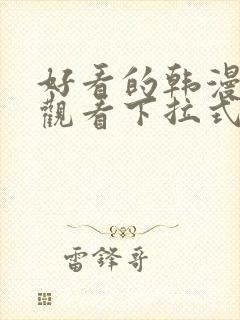 好看的韩漫
觀看下拉式
雷鋒哥